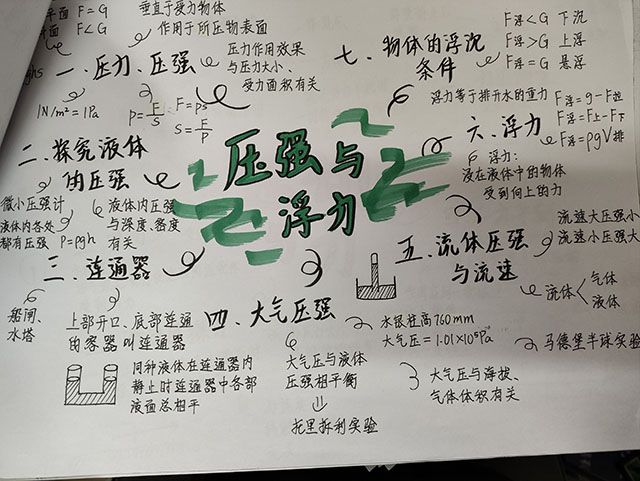 平面 F=G
垂直于受力物体
面 F<G
作用于所压物表面
一、压力、压强
压力作用效果
与压力大小、
受力面积有关
1N/m²=1Pa
P=F/S
F=ps
S=F/P
二、探究液体
的压强
微小压强计
液体内各处
都有压强 P=ρgh
液体内压强
与深度、密度
有关
三、连通器
船闸、
水塔
上部开口、底部连通
的容器叫连通器
同种液体在连通器内
静止时连通器中各部
液面总相平
压强与
浮力
四、大气压强
大气压与液体
压强相平衡
⇓
托里拆利实验
水银柱高760mm
大气压=1.01×10⁵Pa
马德堡半球实验
大气压与海拔、
气体体积有关
五、流体压强
与流速
流速大压强小
流速小压强大
流体<气体
液体
六、浮力
浮力:
浸在液体中的物体
受到向上的力
浮力等于排开水的重力
F浮=g-F拉
F浮=F上-F下
F浮=ρgV排
七、物体的浮沉
条件
F浮<G 下沉
F浮>G 上浮
F浮=G 悬浮